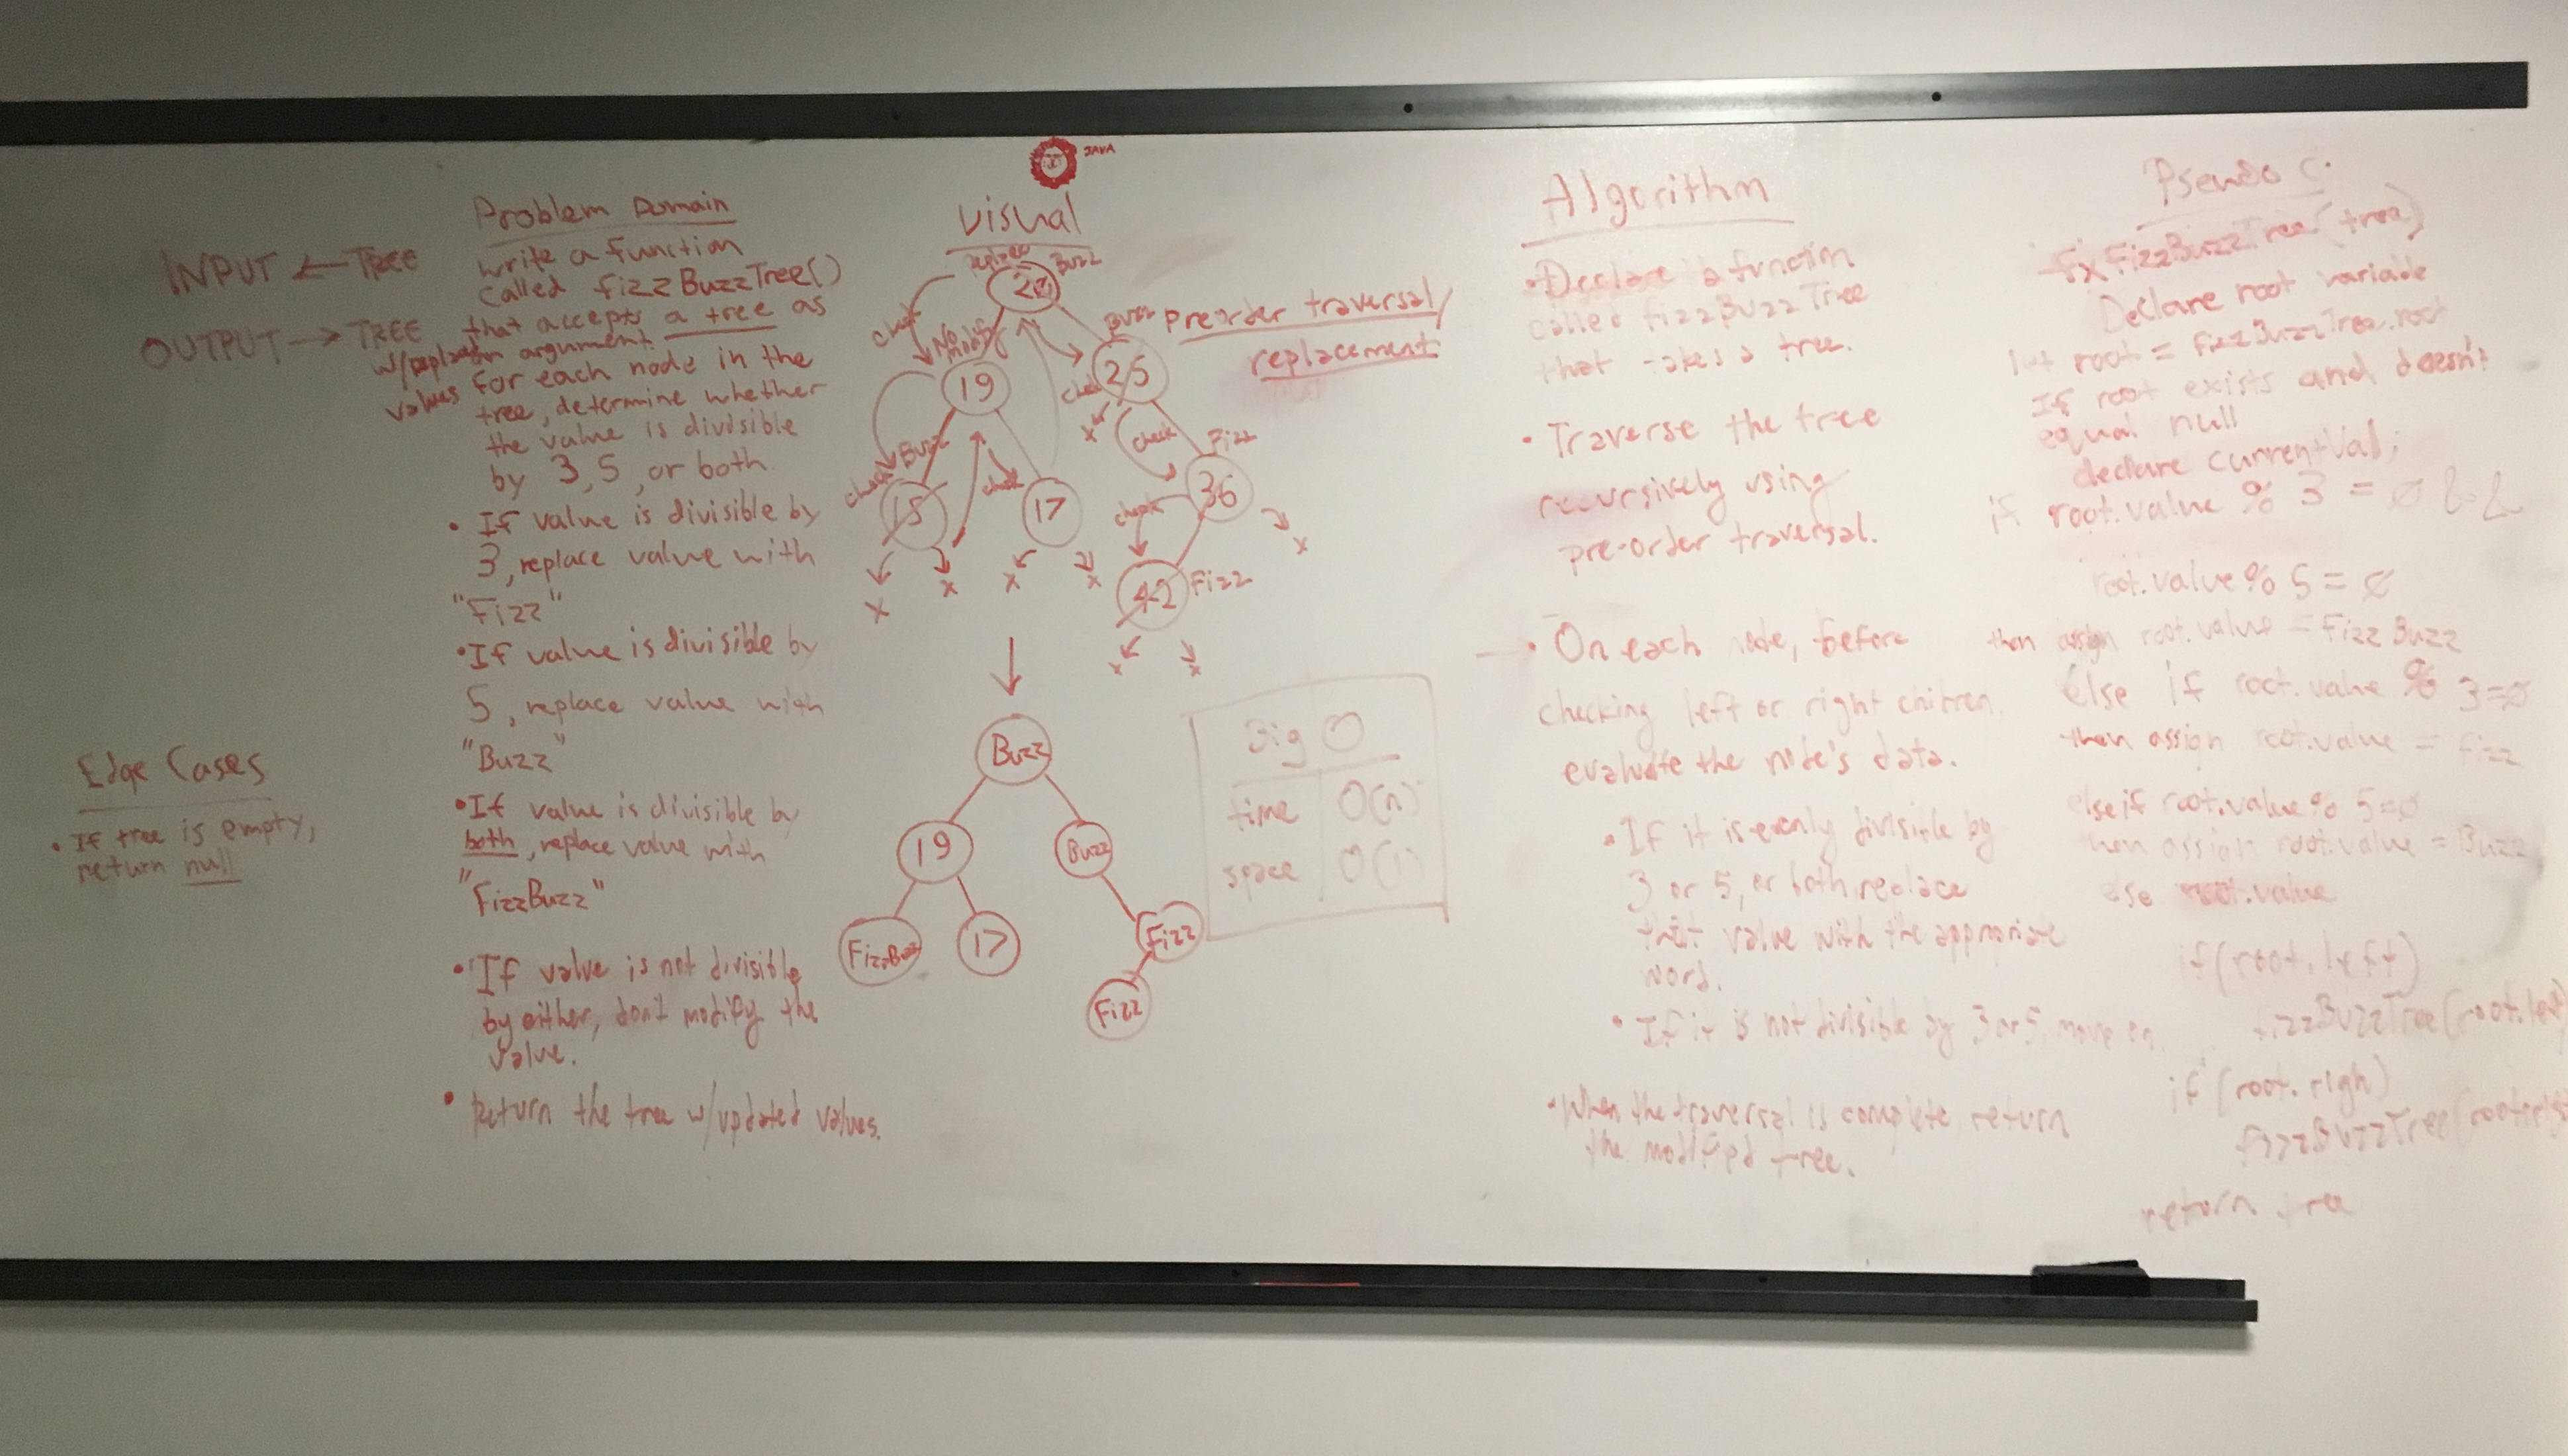 JAVA
INPUT ← TREE
OUTPUT → TREE
values
Edge Cases
• If tree is empty,
return null
Problem Domain
write a function
called fizzBuzzTree()
that accepts a tree as
an argument.
for each node in the
tree, determine whether
the value is divisible
by 3, 5, or both.
• If value is divisible by
3, replace value with
"Fizz"
• If value is divisible by
5, replace value with
"Buzz"
• If value is divisible by
both, replace value with
"FizzBuzz"
• If value is not divisible
by either, don't modify the
value.
• Return the tree w/updated values.
Visual
Buzz
20
check
No
modify
Buzz
Preorder traversal/
replacement
19
25
check
Buzz
check
check
Fizz
15
17
36
check
x
x
x
x
x
x
42
Fizz
x
x
Buzz
19
Buzz
FizzBuzz
17
Fizz
Fizz
Big O
time O(n)
space O(1)
Algorithm
• Declare a function
called fizzBuzzTree
that takes a tree.
• Traverse the tree
recursively using
pre-order traversal.
• On each node, before
checking left or right chilren
evaluate the node's data.
• If it is evenly divisible by
3 or 5, or both replace
that value with the appropriate
word.
• If it is not divisible by 3 or 5, move on
• When the traversal is complete return
the modified tree.
Pseudo C.
fx FizzBuzzTree(tree)
Declare root variable
let root = FizzBuzzTree.root
If root exists and doesn't
equal null
declare currentVal;
if root.value % 3 = 0 &&
root.value % 5 = 0
then assign root.value = Fizz Buzz
else if root.value % 3=0
then assign root.value = Fizz
else if root.value % 5=0
then assign root.value = Buzz
else root.value
if (root.left)
fizzBuzzTree(root.left)
if (root.righ)
fizzBuzzTree(
return tree